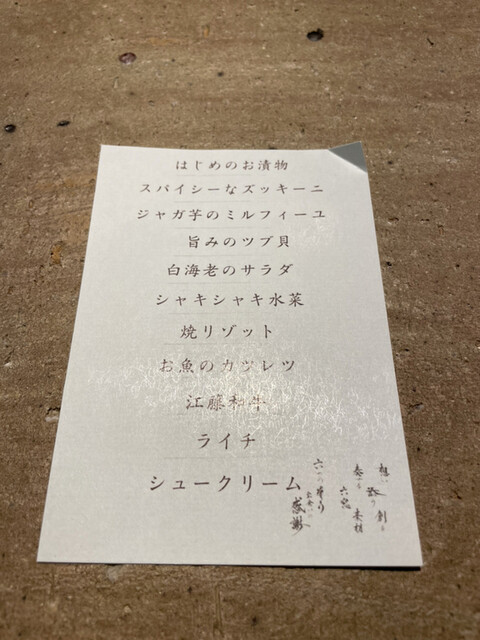 はじめのお漬物
スパイシーなズッキーニ
ジャガ芋のミルフィーユ
旨みのツブ貝
白海老のサラダ
シャキシャキ水菜
焼リゾット
お魚のカツレツ
江藤和牛
ライチ
シュークリーム
感謝